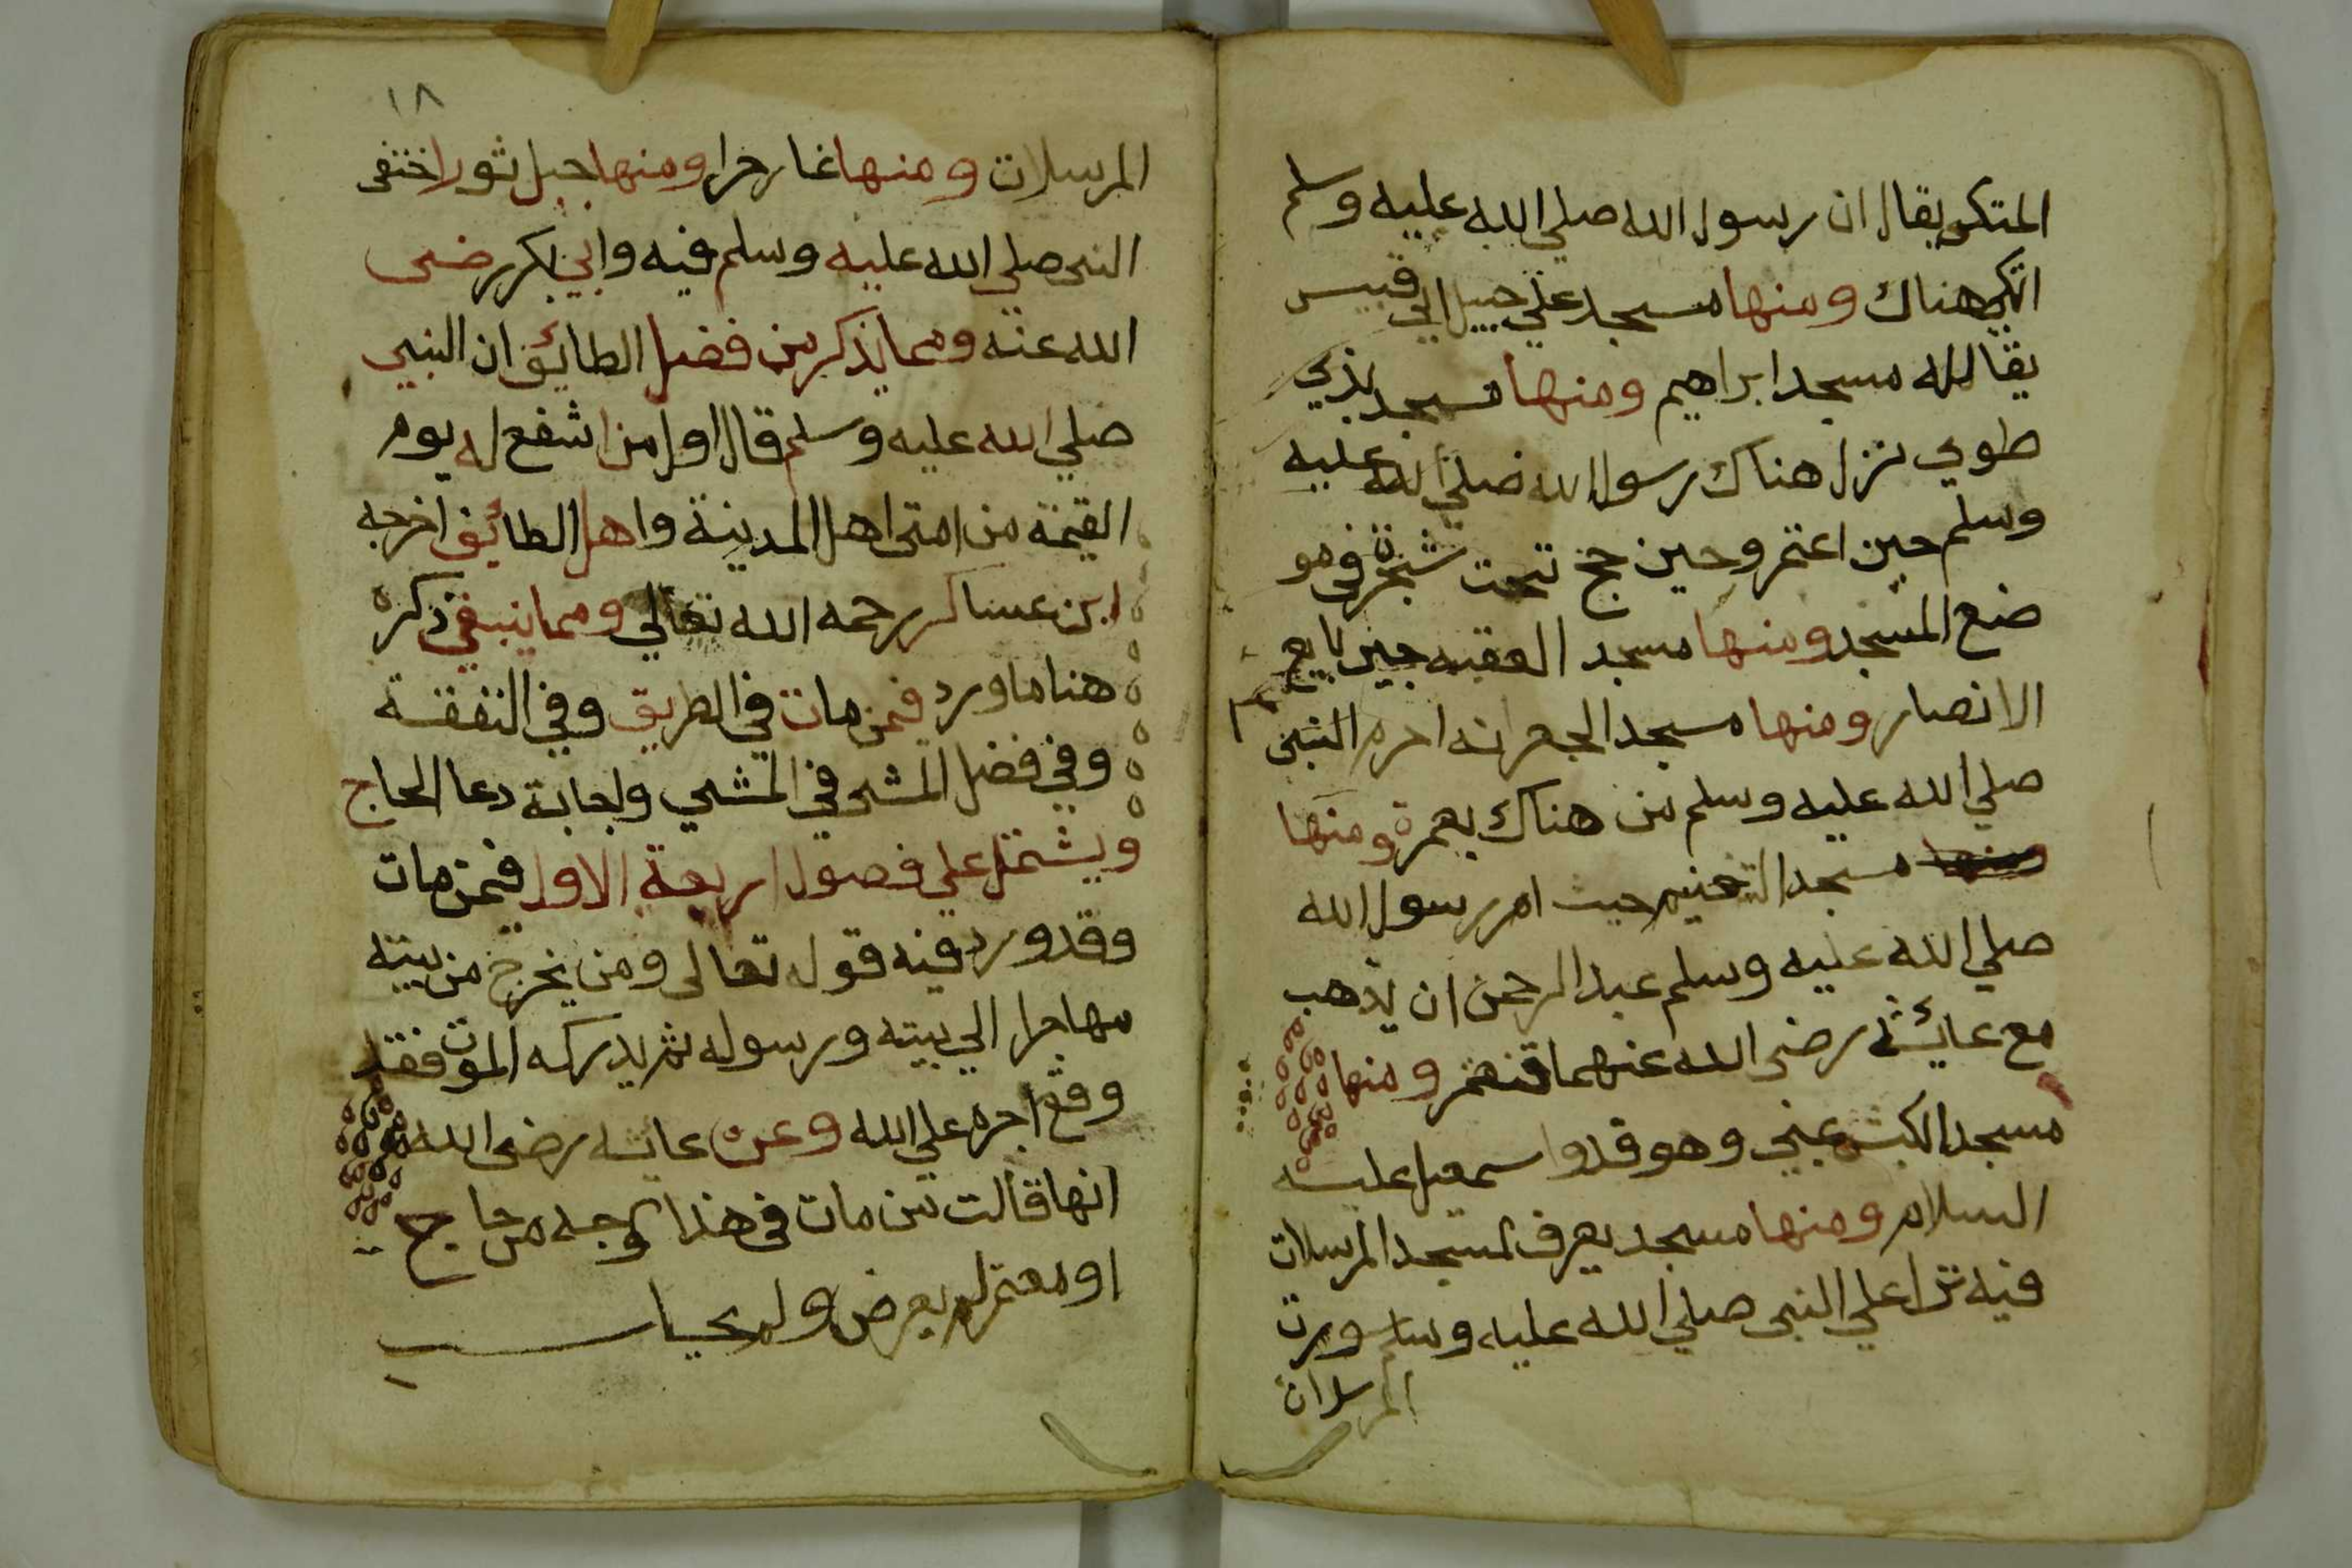 المتكي يقال ان رسول الله صلي الله عليه وسلم
اتكي هناك ومنها مسجد علي جبل ابي قبيس
يقال له مسجد ابراهيم ومنها مسجد بذي
طوي نزل هناك رسول الله صلي الله عليه
وسلم حين اعتمر وحين حج تحت شجرة في مو
ضع المسجد ومنها مسجد العقبه حين بايع
الانصار ومنها مسجد الجعرانه احرم النبي
صلي الله عليه وسلم من هناك بعمرة ومنها
ومنها مسجد التنعيم حيث امر رسول الله
صلي الله عليه وسلم عبد الرحمن ان يذهب
مع عائشة رضى الله عنهما ومنها
مسجد الكبش بمني وهو فدو اسمعيل عليه
السلام ومنها مسجد يعرف بمسجد المرسلات
فيه نزل علي النبي صلي الله عليه وسلم سورت
المرسلات
١٨
المرسلات ومنها غار حرا ومنها جبل ثور اختفى
النبى صلي الله عليه وسلم فيه وابي بكر رضى
الله عنه ومما يذكر من فضل الطائف ان النبي
صلي الله عليه وسلم قال اول من اشفع له يوم
القيمة من امتى اهل المدينة واهل الطائف اخرجه
ابن عساكر رحمه الله تعالي ومما ينبغي ذكره
هنا ما ورد فيمن مات في الطريق وفي النفقة
وفي فضل المشي في المشي واجابة دعا الحاج
ويشتمل علي فصول اربعة الاول فيمن مات
وقد ورد فيه قوله تعالى ومن يخرج من بيته
مهاجرا الي بيته ورسوله ثم يدركه الموت فقد
وقع اجره علي الله وعن عايشه رضى الله
انها قالت من مات في هذا الوجه من حاج
او معتمر لم يعرض ولم يحاسب